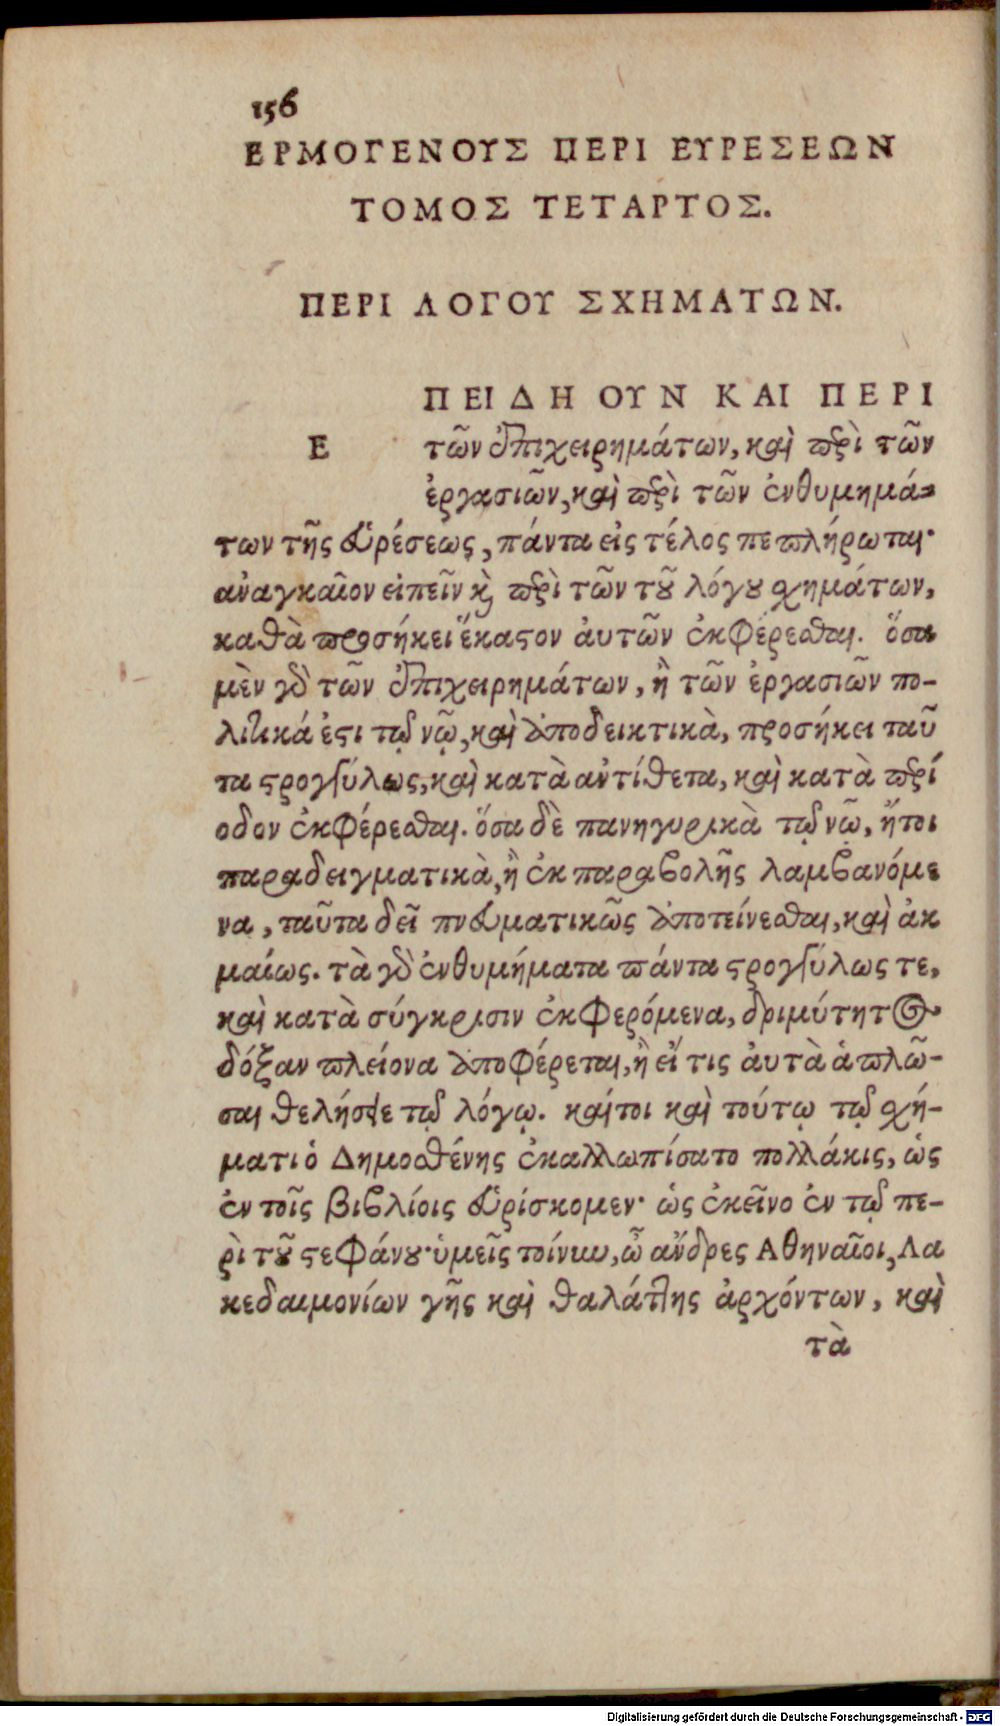 156
ΕΡΜΟΓΕΝΟΥΣ ΠΕΡΙ ΕΥΡΕΣΕΩΝ
ΤΟΜΟΣ ΤΕΤΑΡΤΟΣ.
ΠΕΡΙ ΛΟΓΟΥ ΣΧΗΜΑΤΩΝ.
ΠΕΙΔΗ ΟΥΝ ΚΑΙ ΠΕΡΙ
Ε τῶν ἐπιχειρημάτων, καὶ περὶ τῶν
ἐργασιῶν, καὶ περὶ τῶν ἐνθυμημά-
των τῆς εὑρέσεως, πάντα εἰς τέλος πεπλήρωται·
ἀναγκαῖον εἰπεῖν καὶ περὶ τῶν τοῦ λόγου σχημάτων,
καθὰ προσήκει ἕκαστον ἀυτῶν ἐκφέρεσθαι. ὅσα
μὲν γὰρ τῶν ἐπιχειρημάτων, ἢ τῶν ἐργασιῶν πο-
λιτικά ἐστι τῷ νῷ, καὶ ἀποδεικτικὰ, προσήκει ταῦ
τα στρογγύλως, καὶ κατὰ αντίθετα, καὶ κατὰ περί
οδον ἐκφέρεσθαι. ὅσα δὲ πανηγυρικὰ τῷ νῷ, ἤτοι
παραδειγματικὰ, ἢ ἐκ παραβολῆς λαμβανόμε
να, ταῦτα δεῖ πνευματικῶς ἀποτείνεσθαι, καὶ ἀκ
μαίως. τὰ γὰρ ἐνθυμήματα πάντα στρογγύλως τε,
καὶ κατὰ σύγκρισιν ἐκφερόμενα, δριμύτητος
δόξαν πλείονα ἀποφέρεται, ἢ εἴ τις ἀυτὰ ἁπλῶ-
σαι θελήσειε τῷ λόγῳ. καίτοι καὶ τούτῳ τῷ σχή-
ματι ὁ Δημοσθένης ἐκαλλωπίσατο πολλάκις, ὡς
ἐν τοῖς βιβλίοις εὑρίσκομεν· ὡς ἐκεῖνο ἐν τῷ πε-
ρὶ τοῦ στεφάνου· ὑμεῖς τοίνυν, ὦ ἄνδρες Αθηναῖοι, Λα
κεδαιμονίων γῆς καὶ θαλάττης ἀρχόντων, καὶ
τὰ
Digitalisierung gefördert durch die Deutsche Forschungsgemeinschaft - DFG